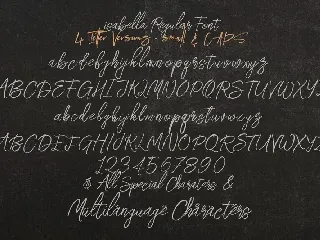 isabella Regular Font
4 Type Versions - small & CAPS
abcdefghijklmnopqrstuvwxyz
ABCDEFGHIJKLMNOPQRSTUVWXYZ
abcdefghijklmnopqrstuvwxyz
ABCDEFGHIJKLMNOPQRSTUVWXYZ
1234567890
& All Special Characters &
Multilanguage Characters